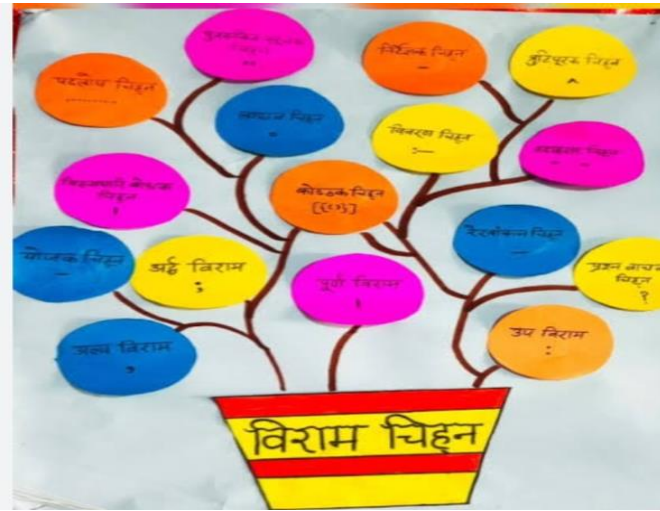 पुनरुक्ति सूचक
चिह्न
""
निर्देशक चिह्न
–
त्रुटिपूरक चिह्न
^
पदलोप चिह्न
........
लाघव चिह्न
०
विवरण चिह्न
:—
उद्धरण चिह्न
" "
विस्मयादि बोधक
चिह्न
!
कोष्ठक चिह्न
[{()}]
रेखांकन चिह्न
—
योजक चिह्न
–
अर्द्ध विराम
;
पूर्ण विराम
।
प्रश्न वाचक
चिह्न
?
अल्प विराम
,
उप विराम
:
विराम चिह्न